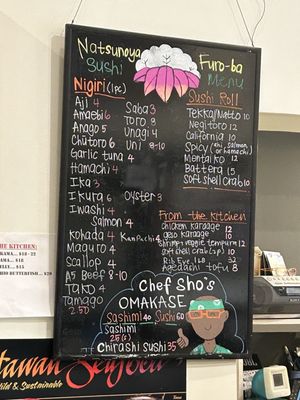 Natsunoya
Sushi
Furo-ba
Menu
Nigiri (1pc)
Aji 4
Amaebi 6
Anago 5
Chutoro 6
Garlic tuna 4
Hamachi 4
Ika 3
Ikura 6
Iwashi 4
Salmon 4
Kohada 4
Maguro 4
Scallop 4
A5 Beef 8-10
Tako 4
Tamago
2.50
Saba 3
Toro 9
Unagi 4
Uni 8-10
Oyster 3
Kanpachi 4
Sushi Roll
Tekka/Natto 10
Negitoro 12
California 10
Spicy (ahi, salmon
or hamachi)
Mentaiko 12
Battera 15
Soft Shell Crab 10
From the kitchen
chicken karaage 12
gobo karaage 10
shrimp+veggie tempura 12
soft shell crab 16
Rib Eye 32
Agedashi tofu 8
Chef Sho's
OMAKASE
Sashimi 40 Sushi 60
Sashimi
Chirashi Sushi 35
THE KITCHEN
Seafood
Wild & Sustainable